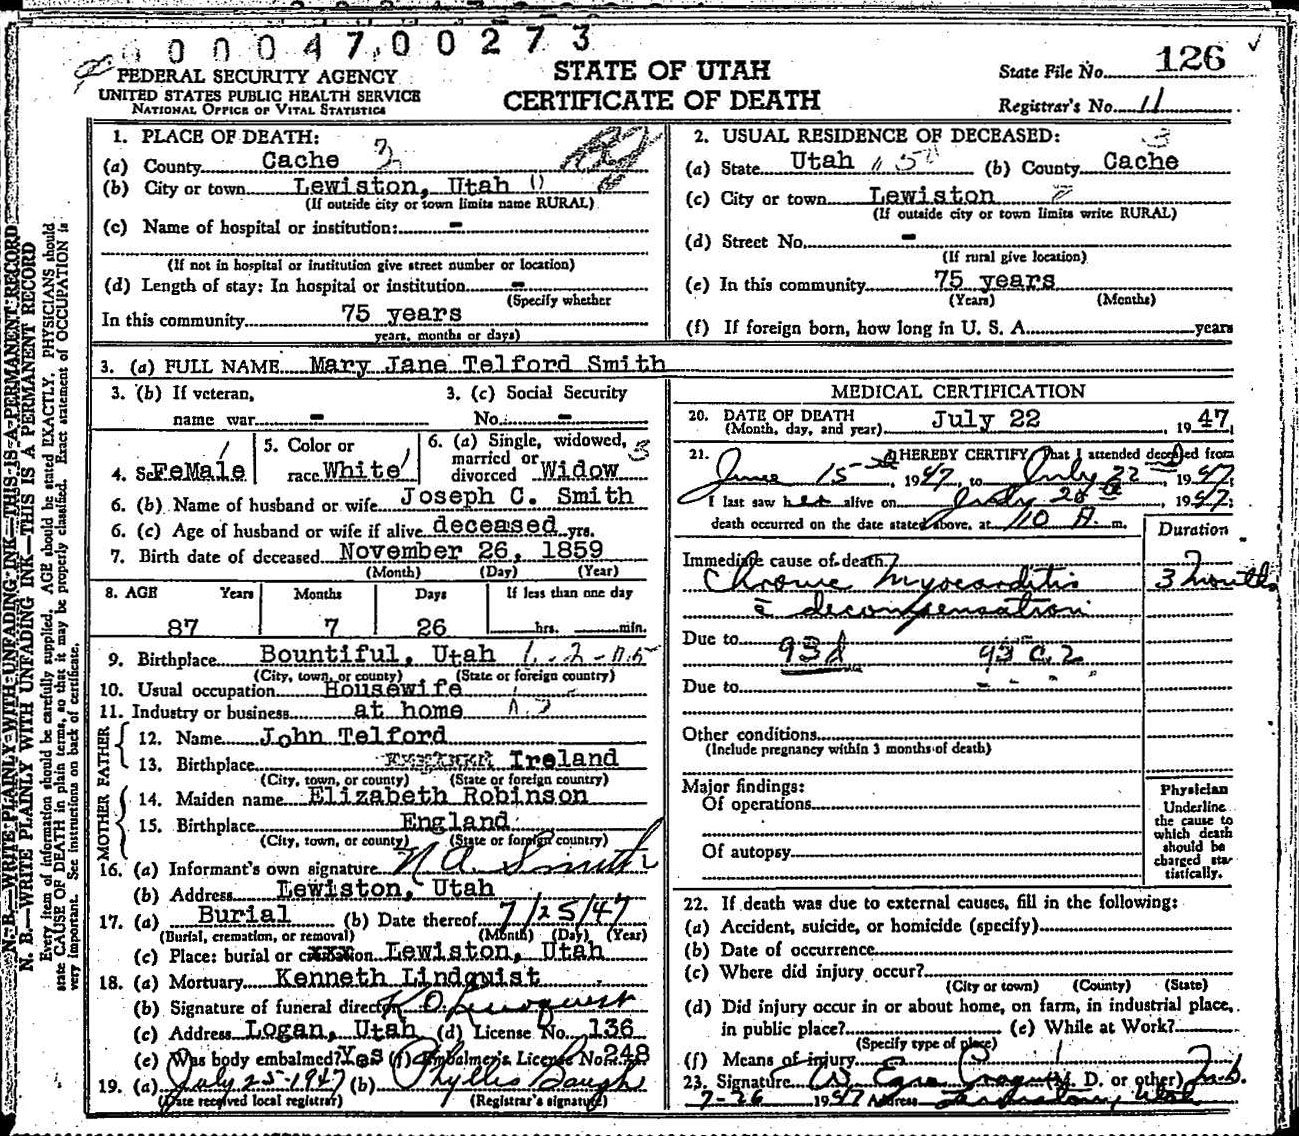 0 0 0 0 4 7 0 0 2 7 3
FEDERAL SECURITY AGENCY
UNITED STATES PUBLIC HEALTH SERVICE
NATIONAL OFFICE OF VITAL STATISTICS
STATE OF UTAH
CERTIFICATE OF DEATH
State File No. 126
Registrar's No. 11
N. B.—WRITE PLAINLY WITH UNFADING INK—THIS IS A PERMANENT RECORD
N. B.—WRITE PLAINLY WITH UNFADING INK—THIS IS A PERMANENT RECORD
Every item of information should be carefully supplied. AGE should be stated EXACTLY. PHYSICIANS should
state CAUSE OF DEATH in plain terms, so that it may be properly classified. Exact statement of OCCUPATION is
very important. See instructions on back of certificate.
1. PLACE OF DEATH:
(a) County Cache 3
(b) City or town Lewiston, Utah
(If outside city or town limits name RURAL)
(c) Name of hospital or institution: -
(If not in hospital or institution give street number or location)
(d) Length of stay: In hospital or institution -
(Specify whether
In this community 75 years
years, months or days)
2. USUAL RESIDENCE OF DECEASED:
(a) State Utah (b) County Cache
(c) City or town Lewiston
(If outside city or town limits write RURAL)
(d) Street No. -
(If rural give location)
(e) In this community 75 years
(Years) (Months)
(f) If foreign born, how long in U. S. A. years
3. (a) FULL NAME Mary Jane Telford Smith
3. (b) If veteran,
name war -
3. (c) Social Security
No. -
4. Sex FeMale
5. Color or
race White
6. (a) Single, widowed,
married or
divorced Widow
6. (b) Name of husband or wife Joseph C. Smith
6. (c) Age of husband or wife if alive deceased yrs.
7. Birth date of deceased November 26, 1859
(Month) (Day) (Year)
8. AGE Years Months Days If less than one day
87 7 26 hrs. min.
9. Birthplace Bountiful, Utah
(City, town, or county) (State or foreign country)
10. Usual occupation Housewife
11. Industry or business at home
FATHER
12. Name John Telford
13. Birthplace Ireland
(City, town, or county) (State or foreign country)
MOTHER
14. Maiden name Elizabeth Robinson
15. Birthplace England
(City, town, or county) (State or foreign country)
16. (a) Informant's own signature N. A. Smith
(b) Address Lewiston, Utah
17. (a) Burial (b) Date thereof 7/25/47
(Burial, cremation, or removal) (Month) (Day) (Year)
(c) Place: burial or cremation Lewiston, Utah
18. (a) Mortuary Kenneth Lindquist
(b) Signature of funeral director K. O. Lindquist
(c) Address Logan, Utah (d) License No. 136
(e) Was body embalmed? Yes (f) Embalmer's License No. 248
19. (a) July 25-1947 (b) Phyllis Baugh
(Date received local registrar) (Registrar's signature)
MEDICAL CERTIFICATION
20. DATE OF DEATH
(Month, day, and year) July 22, 1947
21. I HEREBY CERTIFY, That I attended deceased from
June 15th, 1947, to July 22nd, 1947
I last saw her alive on July 20th, 1947;
death occurred on the date stated above, at 10 A. m.
Duration
Immediate cause of death
Chronic Myocarditis 3 months
c̄ decompensation
Due to 93d 93 C.2
Due to
Other conditions
(Include pregnancy within 3 months of death)
Major findings:
Of operations
Of autopsy
Physician
Underline
the cause to
which death
should be
charged sta-
tistically.
22. If death was due to external causes, fill in the following:
(a) Accident, suicide, or homicide (specify)
(b) Date of occurrence
(c) Where did injury occur?
(City or town) (County) (State)
(d) Did injury occur in or about home, on farm, in industrial place,
in public place? (e) While at Work?
(Specify type of place)
(f) Means of injury
23. Signature (M. D. or other) M.D.
7-26 1947 Address Lewiston, Utah